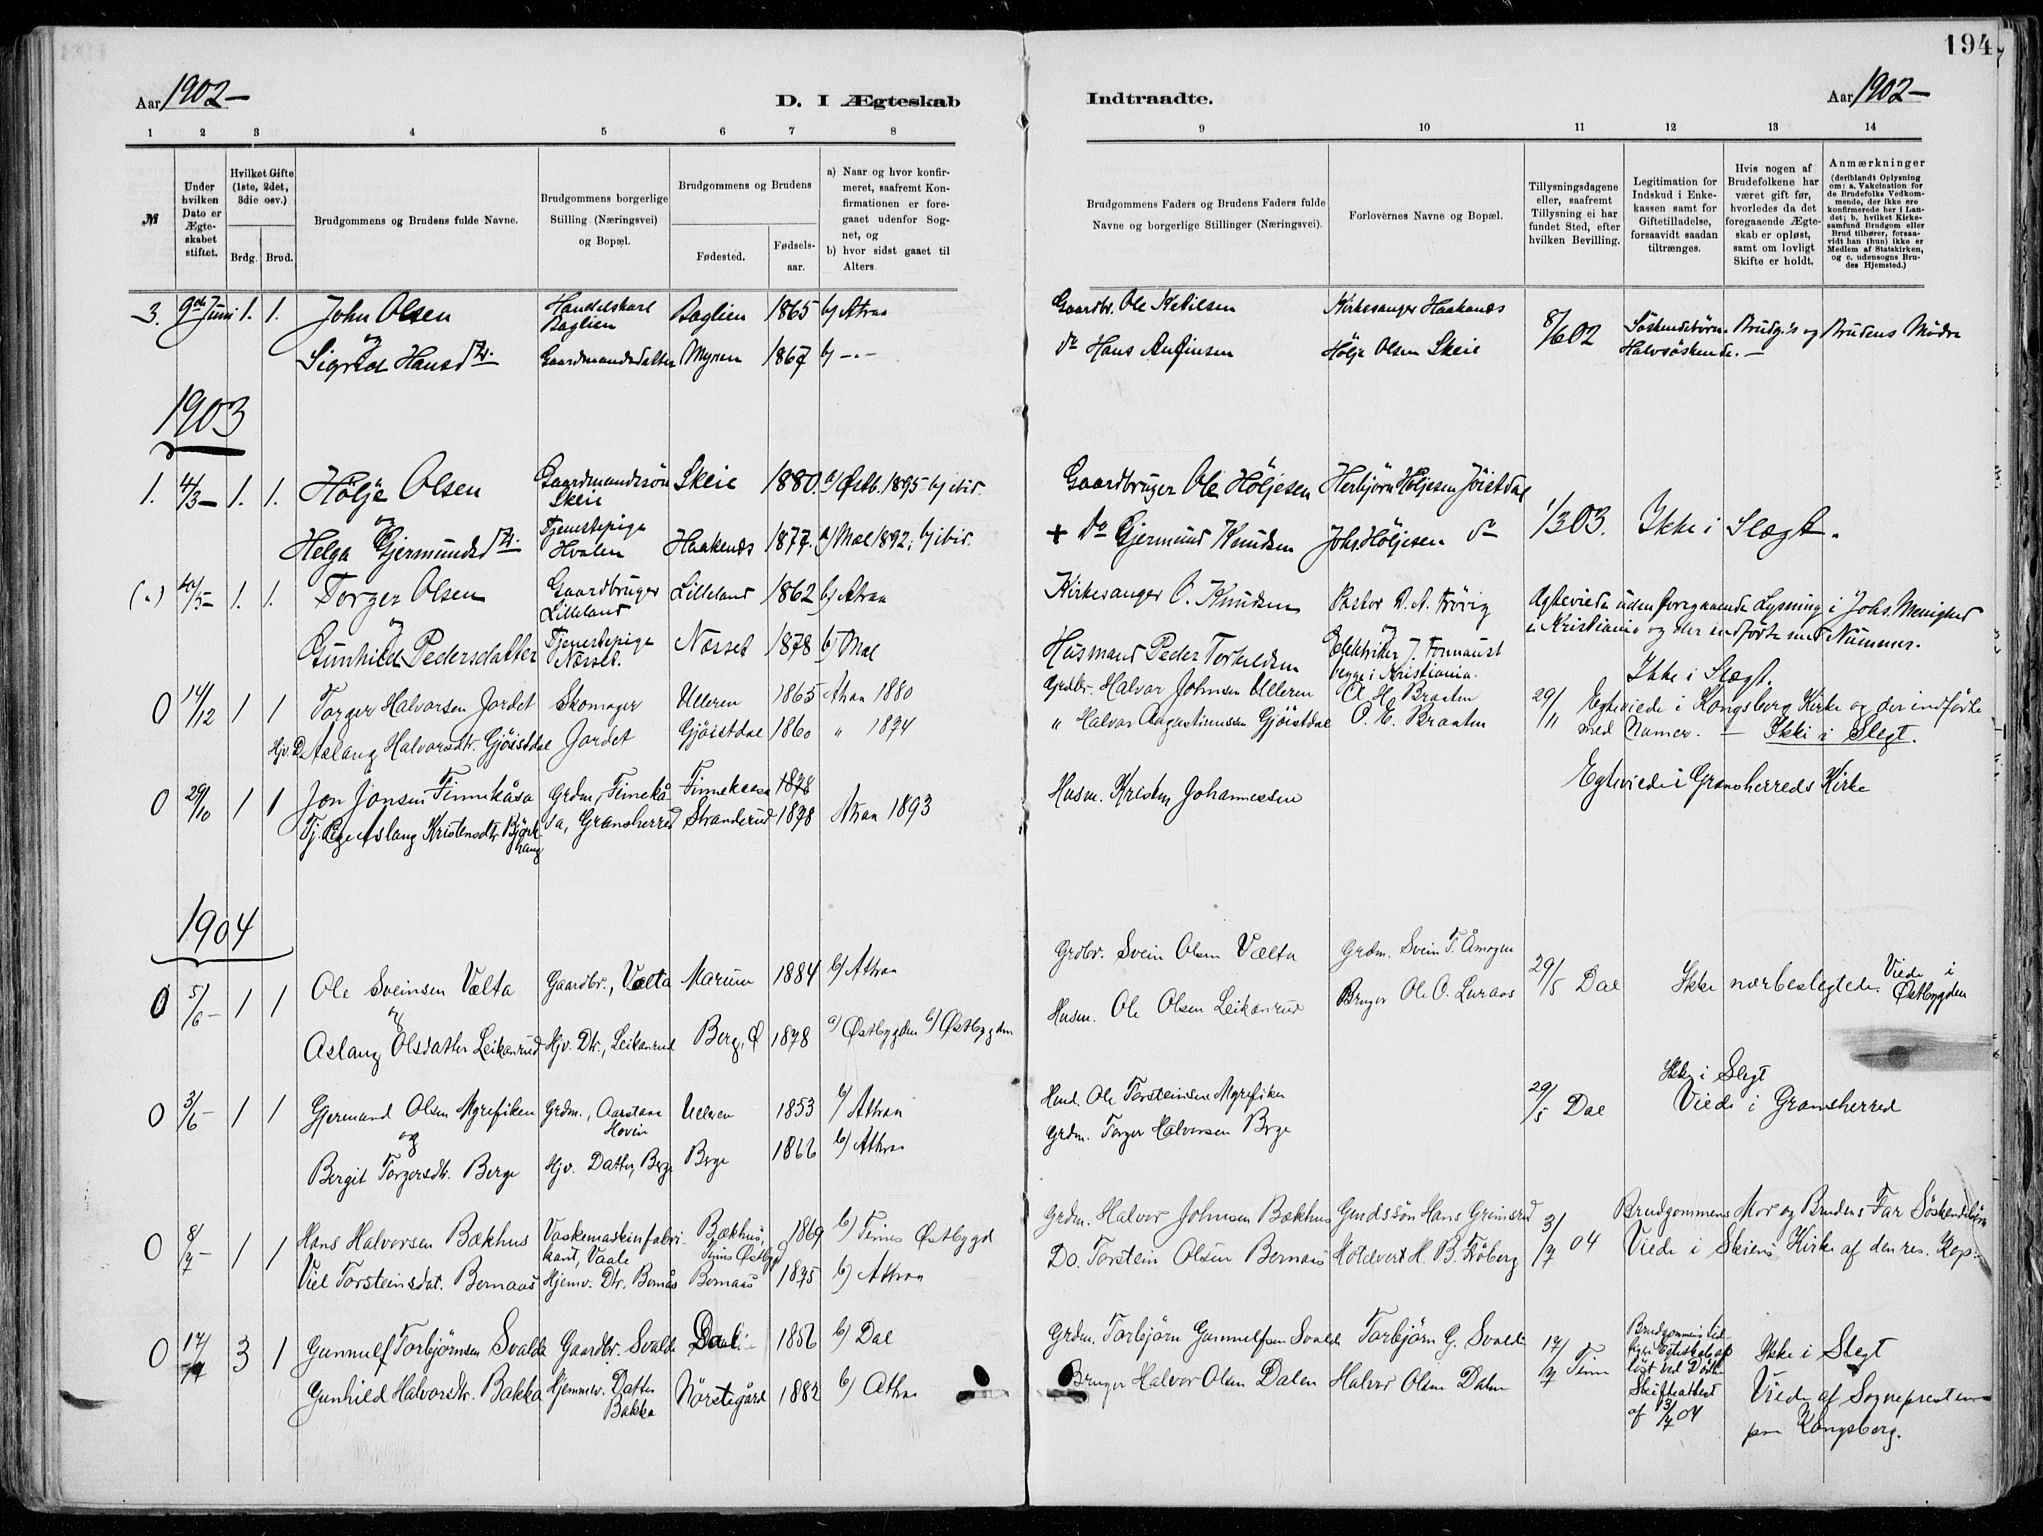 194
Aar 1902 –
D. I Ægteskab
Indtraadte.
Aar 1902 –
1 2 3 4 5 6 7 8
9 10 11 12 13 14
№
Under hvilken Dato er Ægteskabet stiftet.
Hvilket Gifte (1ste, 2det, 3die osv.)
Brdg. Brud.
Brudgommens og Brudens fulde Navne.
Brudgommens borgerlige Stilling (Næringsvei) og Bopæl.
Brudgommens og Brudens
Fødested.
Fødsels-aar.
a) Naar og hvor konfirmeret, saafremt Konfirmationen er foregaaet udenfor Sognet, og
b) hvor sidst gaaet til Alters.
Brudgommens Faders og Brudens Faders fulde Navne og borgerlige Stillinger (Næringsvei).
Forlovernes Navne og Bopæl.
Tillysningsdagene eller, saafremt Tillysning ei har fundet Sted, efter hvilken Bevilling.
Legitimation for Indskud i Enkekassen samt for Giftetilladelse, forsaavidt saadan tiltrænges.
Hvis nogen af Brudefolkene har været gift før, hvorledes da det foregaaende Ægteskab er opløst, samt om lovligt Skifte er holdt.
Anmærkninger (deriblandt Oplysning om: a. Vakcination for de Brudefolks Vedkommende, der ikke ere konfirmerede her i Landet; b. hvilket Kirkesamfund Brudgom eller Brud tilhører, forsaavidt han (hun) ikke er Medlem af Statskirken, og c. udensogns Brudes Hjemsted.)
3. 9de Juni 1. 1. John Olsen Handelskarl Baglien Baglien 1865 b) Atraa Gaardbr. Ole Ketilsen Kirkesanger Haakanæs 8/6 02 Söskendebörn. Brudg.s og Brudens Mödre
og
Sigrid Hansdtr. Gaardmandsdatter Myran 1867 b) –"– do Hans Anfinsen Hölje Olsen Skeie Halvsöskende. –
1903
1. 4/3 – 1. 1. Hölje Olsen Gaardmandssön Skeie Skeie 1880. a) Östb. 1895 b) ibid. Gaardbruger Ole Höljesen Herbjörn Höljesen Jöistdal 1/3 03. Ikke i Slægt.
og
Helga Gjermundsdtr. Tjenestepige Hvalen Haakenæs 1877. a) Mæl 1892; b) ibid. + do Gjermund Knudsen Johs. Höljesen do
1. 1. Torger Olsen Gaardbruger Lilleland Lilleland 1862 b) Atraa Kirkesanger O. Knudsen Pastor Agtevieda uden foregaaende Lysning i Johs. Menighed
og i Kristiania og der indförte med Nummer.
Gunhild Pedersdatter Tjenestepige Næsset. Næsset 1878 b) Mæl Husmand Peder Torkildsen Elektriker J. begge i Kristiania. Ikke i Slægt.
0 14/12 1 1 Torger Halvorsen Jordet Skomager Ulleren 1865 Atraa 1880 Grdbr. Halvor Johnsen Ulleren O. H. Braaten 29/11 Egteviede i Kongsberg Kirke og der indförte
Hjv. D. Aslaug Halvorsdtr. Gjöistdal Jordet Gjöistdal 1860 " 1874 " Halvor Augustinussen Gjöistdal O. E. Braaten med Numer. – Ikke i Slegt.
0 29/10 1 1 Jon Jonsen Finnekåsa Grdm. Finnekåsa, Gransherred Finnekaasa 1878 Egteviede i Gransherreds Kirke
Tj. Aslaug Kristensdtr. Björkhaug Stranderud 1878 Atraa 1893 Husm. Kristen Johannessen
1904
0 5/6 – 1 1 Ole Sveinsen Vælta Gaardbr., Vælta Marum 1884 b) Attraa Grdbr. Svein Olsen Vælta Grdm. Svein T. Åmogen 29/5 Dal Ikke nærbeslegtede. Viede i Östbygden
og
Aslaug Olsdatter Leikanrud Hjv. Dtr., Leikanrud Berg, Ö 1878 a) Östbygden b) Östbygden Husm. Ole Olsen Leikanrud Bruger Ole O. Luraas
0 3/6 – 1 1 Gjermund Olsen Myrefiken Grdm., Aarstaae Hovin Ulleren 1853 b) Attraa Husd. Ole Torsteinsen Myrefiken 29/5 Dal Ikke i Slegt
og Viede i Gransherred
Bergit Torgersdtr. Berge Hjv. Datter, Berge Berge 1866 b) Attraa Grdm. Torger Halvorsen Berge
0 8/7 – 1 1 Hans Halvorsen Bækhus Vaskemaskinfabrikant, Vaale Bækhus, Tinns Östbygd 1869 b) Tinns Östbygd Grdm. Halvor Johnsen Bækhus Grdssön Hans Grimsrud 3/7 04 Brudgommens Mor og Brudens Far Söskendebörn
Viel Torsteinsdat. Bernaas Hjemv. Dtr. Bernås Bernaas 1875 b) Attraa Do. Torstein Olsen Bernaas Hotelvert H. B. Fröberg Viede i Skiens Kirke af den res. Kap:
0 17/7 3 1 Gunnulf Torbjörnsen Svalde Gaardbr. Svalde Dal 1856 b) Dal Grdm. Torbjörn Gunnulfsen Svalde Torbjörn G. Svalde 17/7 Tinn Brudgommens tidligere Egteskab oplöst ved Död Skifteattest af 13/7 04 Ikke i Slegt
Gunhild Halvorsdtr. Bakka Hjemmev. Datter Bakka Nörstegård 1882 b) Attraa Bruger Halvor Olsen Dalen Halvor Olsen Dalen Viede af Sognepresten paa Kongsberg.